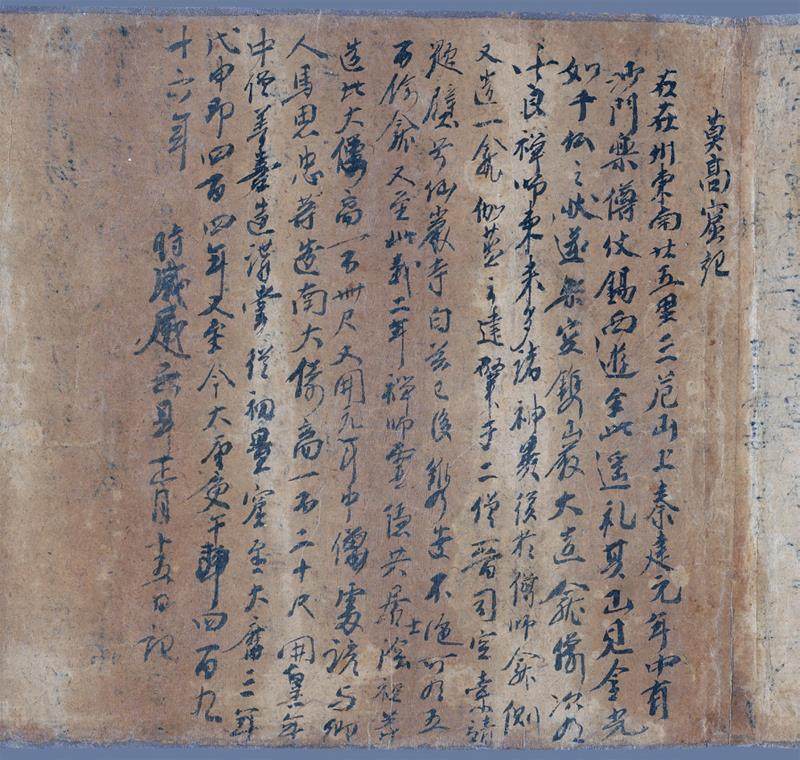 莫高窟記
右在州東南廿五里三危山上秦建元年中有
沙門樂僔仗錫西遊至此遙礼其山見金光
如千仏之狀遂架空鐫巖大造龕像次有
法良禪師東來多諸神異復於僔師龕側
又造一龕伽藍之建肇于二僧晉司空索靖
題壁号仙巖寺自茲已後鐫造不絕可有五
百餘龕又至延載二年禪師靈隱共居士陰祖等
造北大像高一百卌尺又開元年中僧處諺与鄉
人馬思忠等造南大像高一百二十尺開皇年
中僧善喜造講堂從初置窟至大曆三年
戊申即四百四年又至今大唐庚午即四百九
十六年
時咸通六年正月十五日記